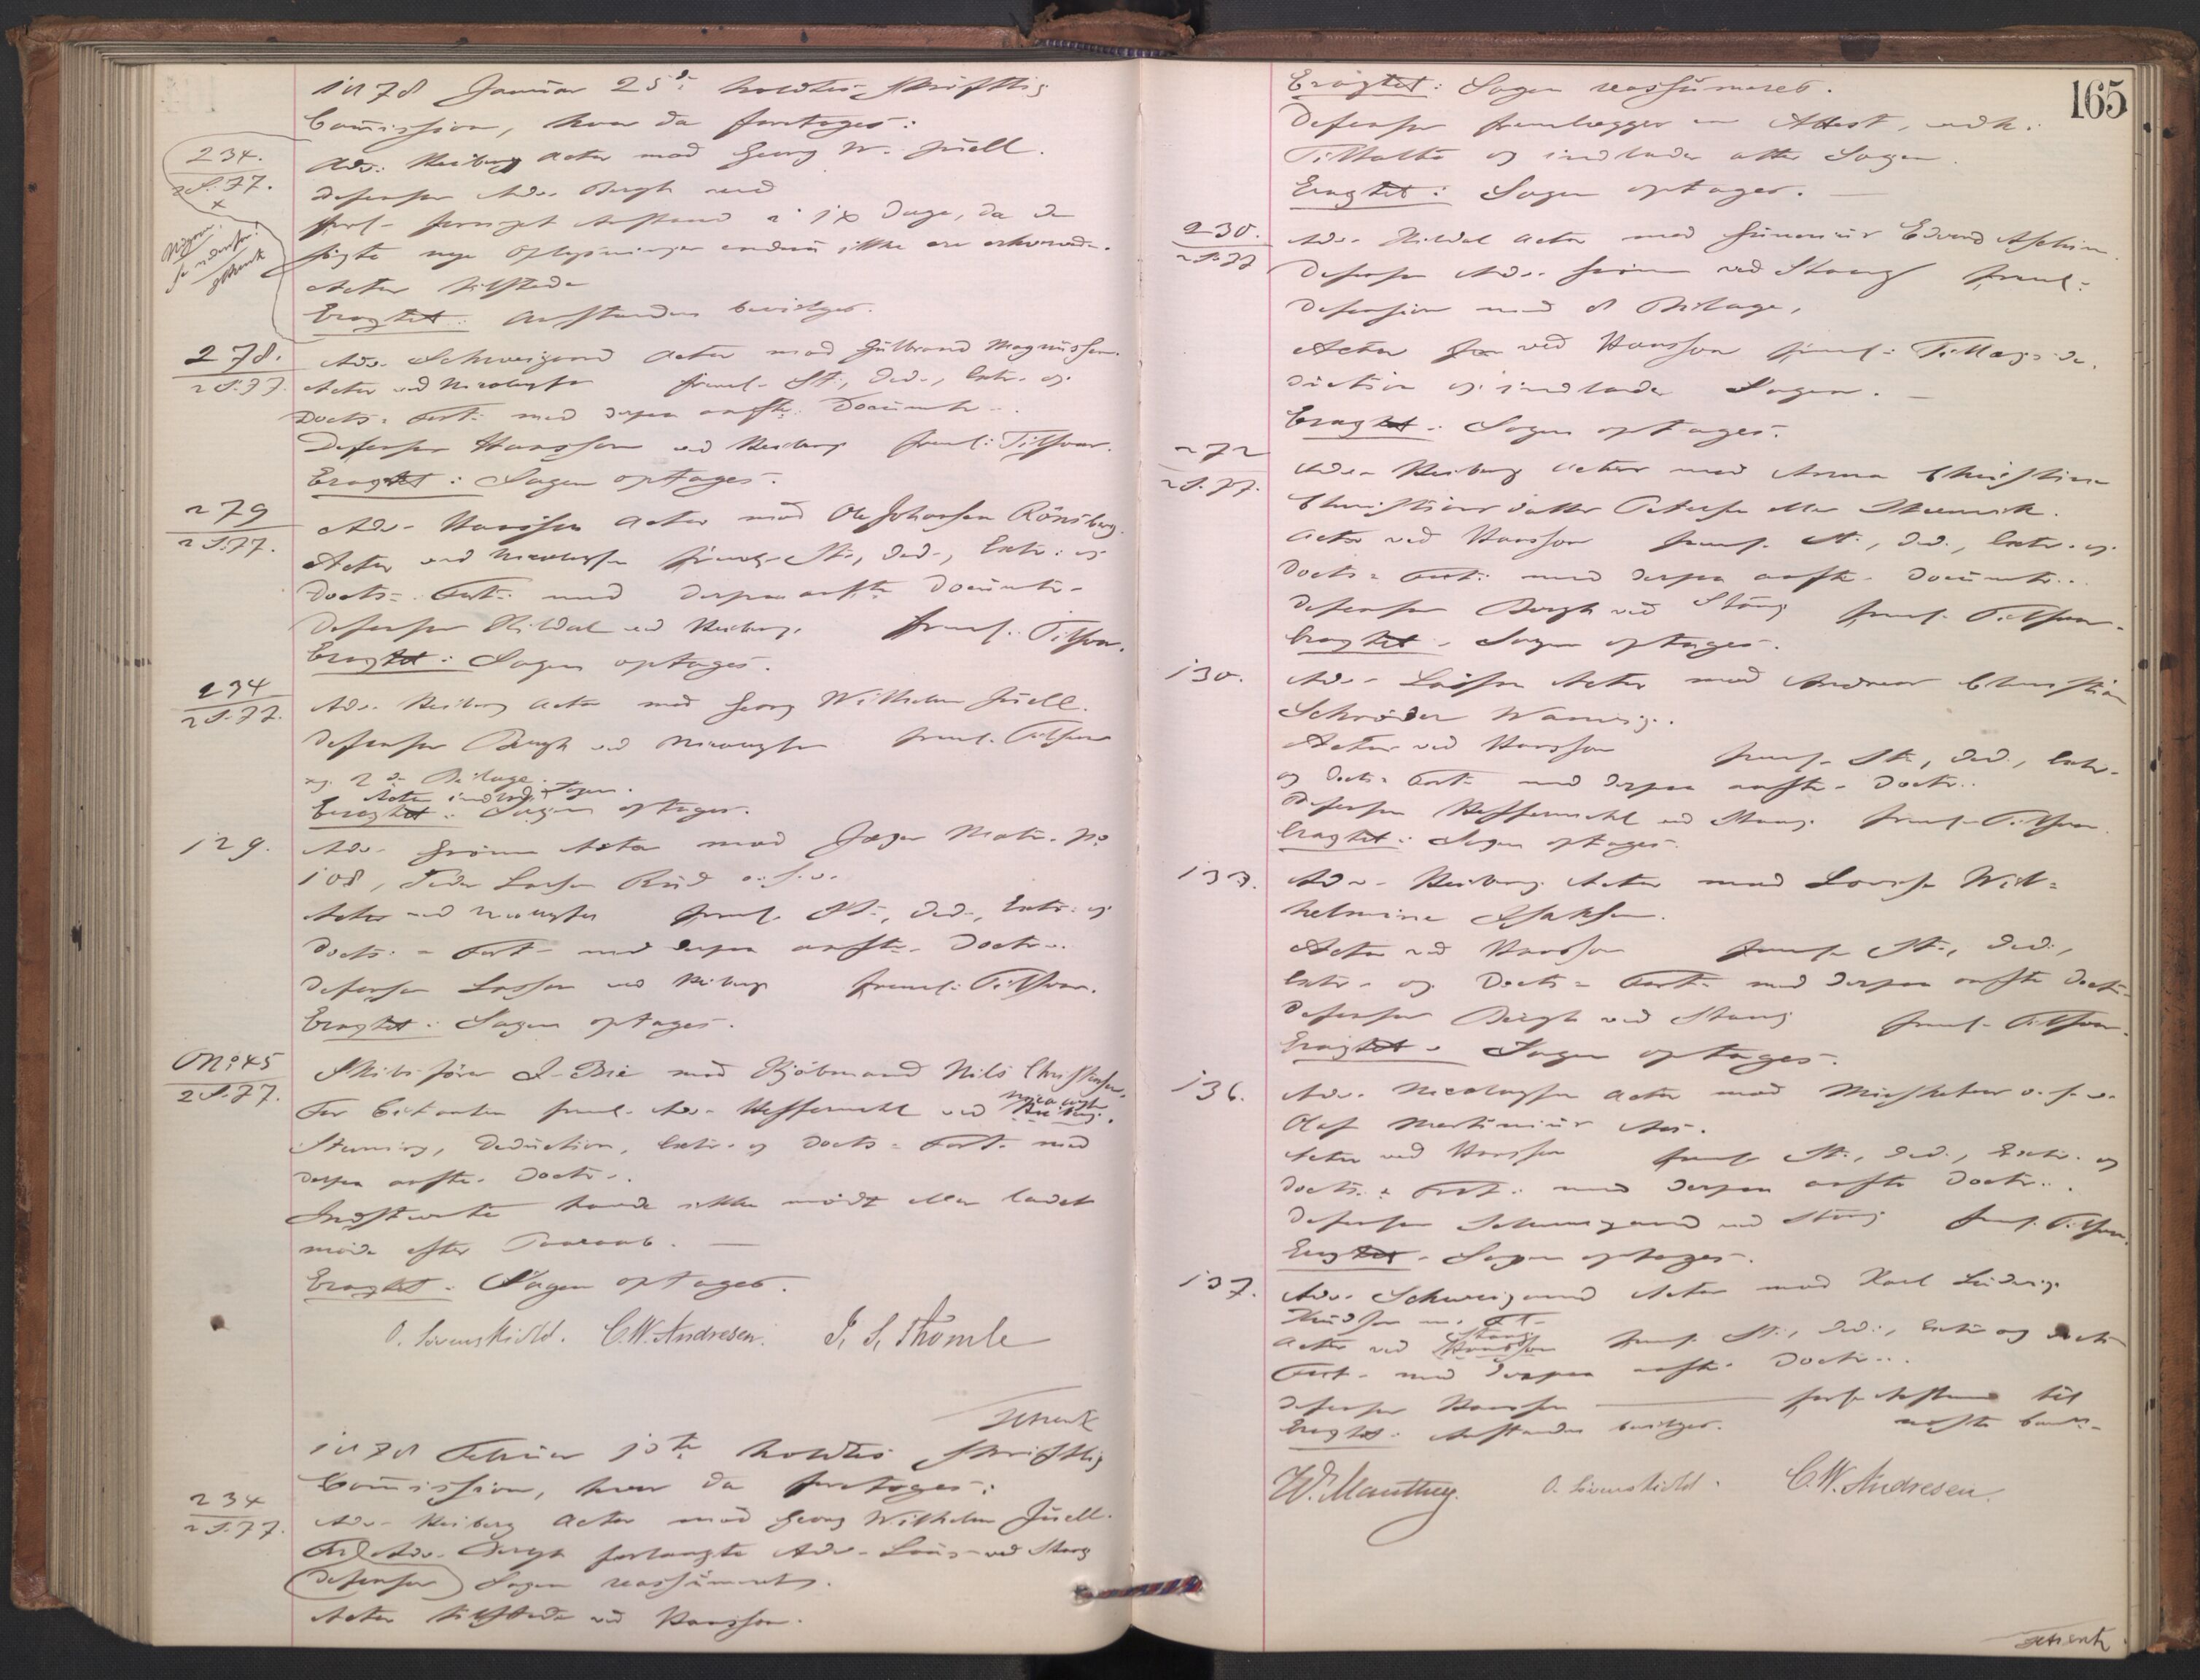 1878 Januar 25de holdtes skriftlig
Comission, hvor da foretages:
234.
2 S. 77.
Adv. Heiberg Actor mod Georg W. Juell.
Defensor Adv. Bergh ved
Anstand 14 Dage, da de
nye Oplysninger endnu ikke ere erhvervede.
Actor tilstede
Eragtet: Anstanden bevilges.
278.
2 S. 77.
Adv. Schweigaard Actor mod Gulbrand Magnussen.
Actor ved Nicolaysen freml. St., Ded., Extr. og
Docts = Fort. med derpaa anfte. Documtr.
Defensor Hansson ved Heiberg freml: Tilsvar.
Eragtet: Sagen optages.
279
2 S. 77.
Adv. Hansson Actor mod Ole Johansen Rönsberg.
Actor ved Nicolaysen freml. St., Ded., Extr. og
Docts = Fort. med derpaa anfte Documtr.
Defensor Hildal ved Heiberg freml. Tilsvar.
Eragtet: Sagen optages.
234
2 S. 77.
Adv. Heiberg Actor mod Georg Wilhelm Juell.
Defensor Bergh ved Nicolaysen freml. Tilsvar
og 2 de Bilage.
Actor indlod Sagen.
Eragtet: Sagen optages.
129.
Adv. Grönn Actor mod Jæger Matr. No
108, Peder Larsen Rud o.s.v.
Actor ved Nicolaysen freml. St., Ded., Extr. og
Docts. = Fort. med derpaa anfte. Doctr.
Defensor Lassen ved Heiberg freml: Tilsvar.
Eragtet: Sagen optages.
No 45
2 S. 77.
Skibsfører J. Bie mod Kjöbmand Nils Christensen.
For Citanten freml. Adv. Heffermehl ved Nicolaysen
Stevning, Deduction, Extr. og Docts = Fort. med
derpaa anfte. Doctr.
Indstevnte havde ikke mödt eller ladet
möde efter Paaraab.
Eragtet: Sagen optages.
O. Lövenskiold. C.W. Andresen. J. S. Thomle
Schenk
1878 Februar 15te holdtes skriftlig
Comission, hvor da foretages:
234
2 S. 77.
Adv. Heiberg Actor mod Georg Wilhelm Juell.
For Adv. Bergh forlangte Adv. Lous ved Stang
(Defensor) Sagen reassumeret.
Actor tilstede ved Hansson.
165
Eragtet: Sagen reassumeres.
Defensor fremlægger en Attest,
Tiltalte og indlader atter Sagen.
Eragtet: Sagen optages.
230.
2 S. 77
Adv. Hildal Actor mod Gunerius Edvard
Defensor Adv. Grönn ved Stang freml:
Defension med 8 Bilage,
Actor ved Hansson freml: Tillægsde-
duction og indlader Sagen.
Eragtet: Sagen optages.
272
2 S. 77.
Adv. Heiberg Actor mod Anna Christine
Christiansdatter Petersen eller
Actor ved Hansson freml. St., Ded., Extr. og
Docts = Fort: med derpaa anfte. Documtr.
Defensor Bergh ved Stang freml. Tilsvar.
Eragtet: Sagen optages.
130.
Adv. Lassen Actor mod Andreas Christian
Schröder Warmig.
Actor ved Hansson freml. St., Ded., Extr.
og Docts = Fort. med derpaa anfte. Doctr.
Defensor Heffermehl ved Stang freml. Tilsvar.
Eragtet: Sagen optages.
133.
Adv. Heiberg Actor mod Lovise Wil=
helmine Isaksen.
Actor ved Hansson freml. St., Ded.,
Extr. og Docts = Fort. med derpaa anfte Doctr.
Defensor Bergh ved Stang freml. Tilsvar.
Eragtet: Sagen optages.
136.
Adv. Nicolaysen Actor mod Musketeer o.s.v.
Olaf Martinius Aas.
Actor ved Hansson freml. St., Ded., Extr. og
Docts = Fort. med derpaa anfte Doctr.
Defensor Schweigaard ved Stang freml. Tilsvar.
Eragtet: Sagen optages.
137.
Adv. Schweigaard Actor mod Karl Ludvig
Knudsen m. Fl.
Actor ved Stang freml. St., Ded., Extr og Docts
Fort. med derpaa anfte. Doctr.
Defensor Hansson Anstand til
Eragtet: Anstanden bevilges. næste Comm.
W. Manthey. O. Lövenskiold. C.W. Andresen.
Schenk